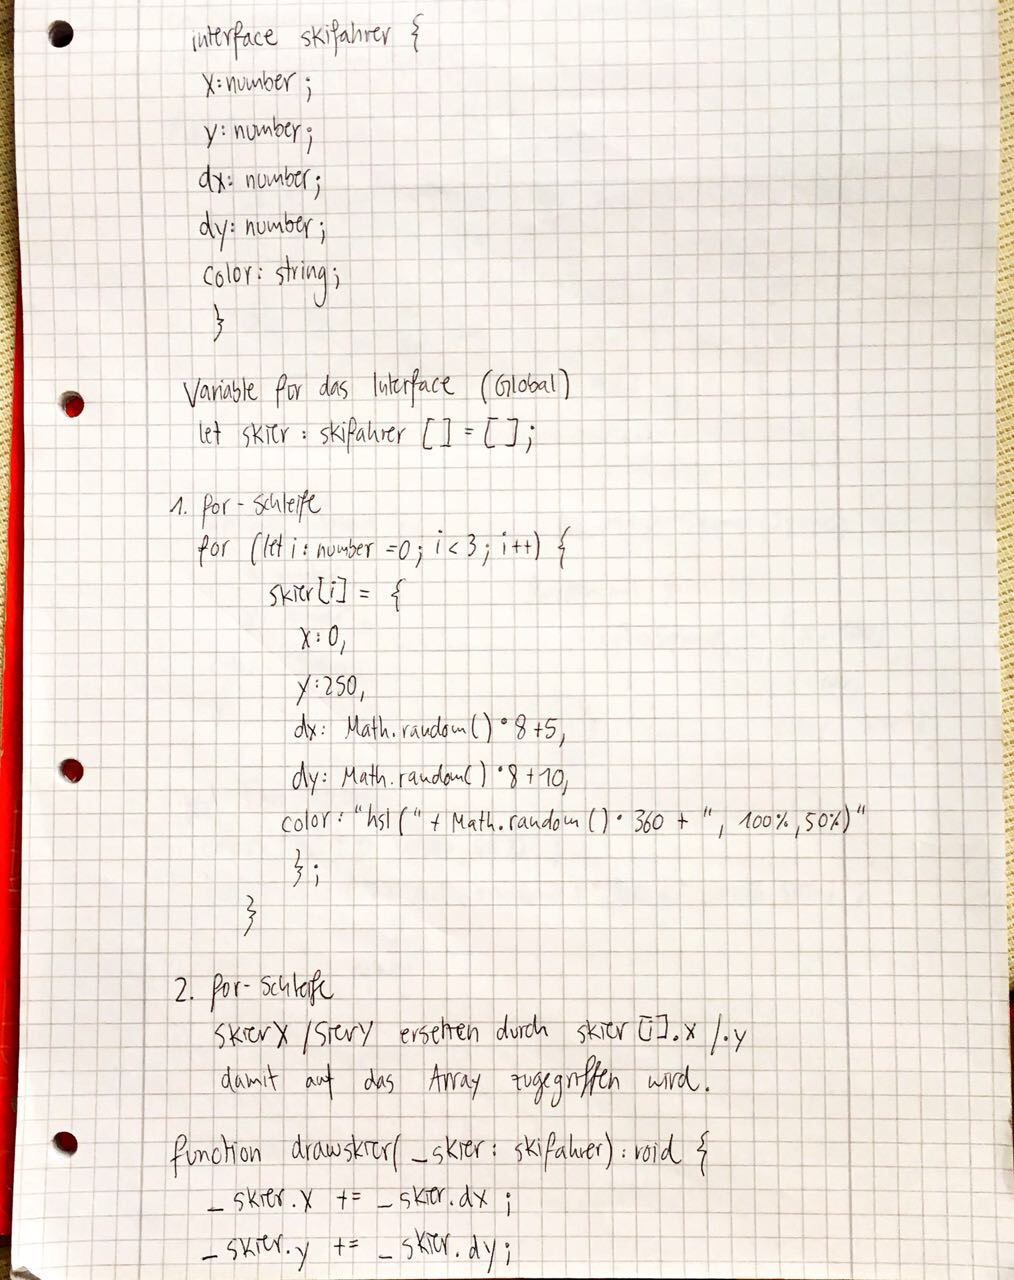 interface skifahrer {
x: number ;
y: number;
dx: number;
dy: number;
color: string;
}
Variable für das Interface (Global)
let skier : skifahrer [] = [];
1. for-Schleife
for (let i : number =0; i < 3 ; i++) {
skier[i] = {
x: 0,
y: 250,
dx: Math.random() * 8 +5,
dy: Math.random() * 8 + 10,
color: "hsl (" + Math.random() * 360 + ", 100%, 50%)"
};
}
2. for-Schleife
skierX / SierY ersetzen durch skier [i].x /.y
damit auf das Array zugegriffen wird.
function drawskier( _skier : skifahrer) : void {
_ skier.x += _ skier.dx ;
_ skier.y += _ skier.dy;